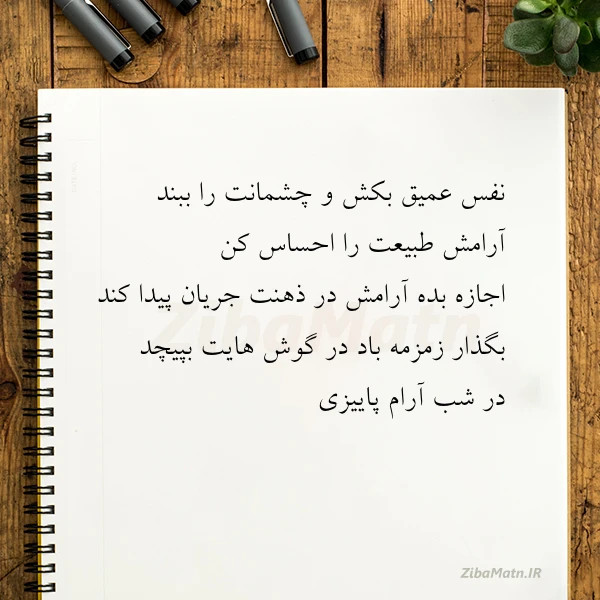 نفس عمیق بکش و چشمانت را ببند
آرامش طبیعت را احساس کن
اجازه بده آرامش در ذهنت جریان پیدا کند
بگذار زمزمه باد در گوش هایت بپیچد
در شب آرام پاییزی
ZibaMatn
ZibaMatn.IR